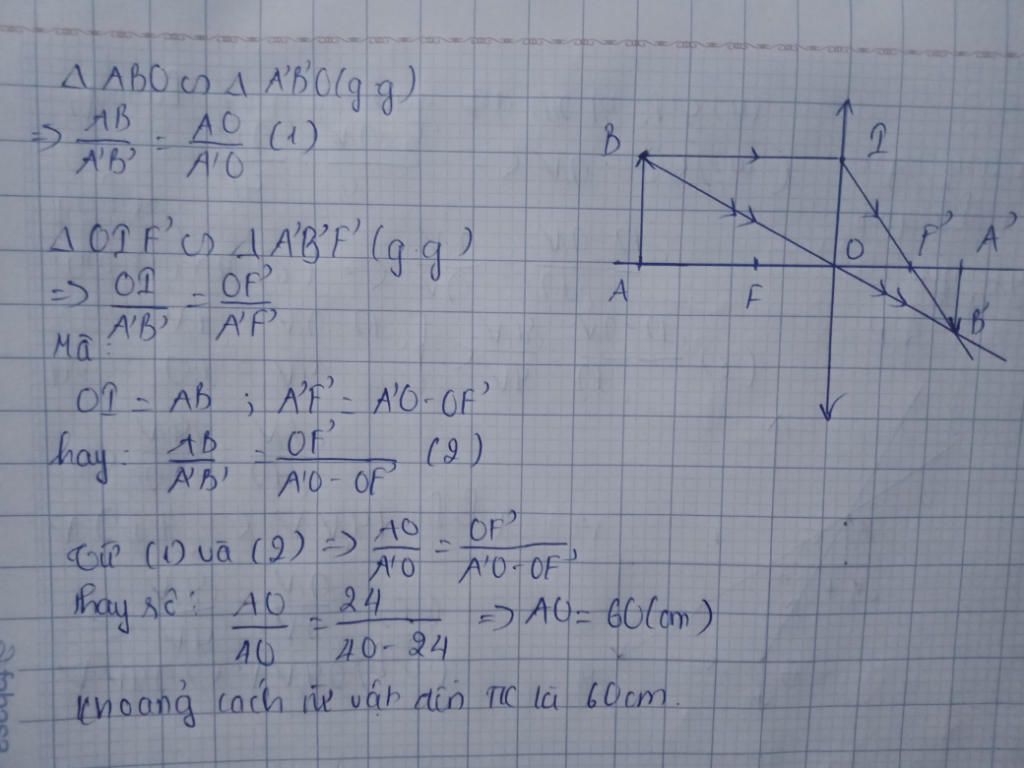 Δ ABO ∽ Δ A'B'O (g g)
=> AB/A'B' = AO/A'O (1)
Δ OIF' ∽ Δ A'B'F' (g.g)
=> OI/A'B' = OF'/A'F'
Mà:
OI = AB ; A'F' = A'O - OF'
hay: AB/A'B' = OF'/A'O - OF' (2)
Từ (1) và (2) => AO/A'O = OF'/A'O - OF'
Thay số: AO/40 = 24/40 - 24 => AO = 60 (cm)
Khoảng cách từ vật đến TK là 60cm.
B
I
O
F'
A'
A
F
B'